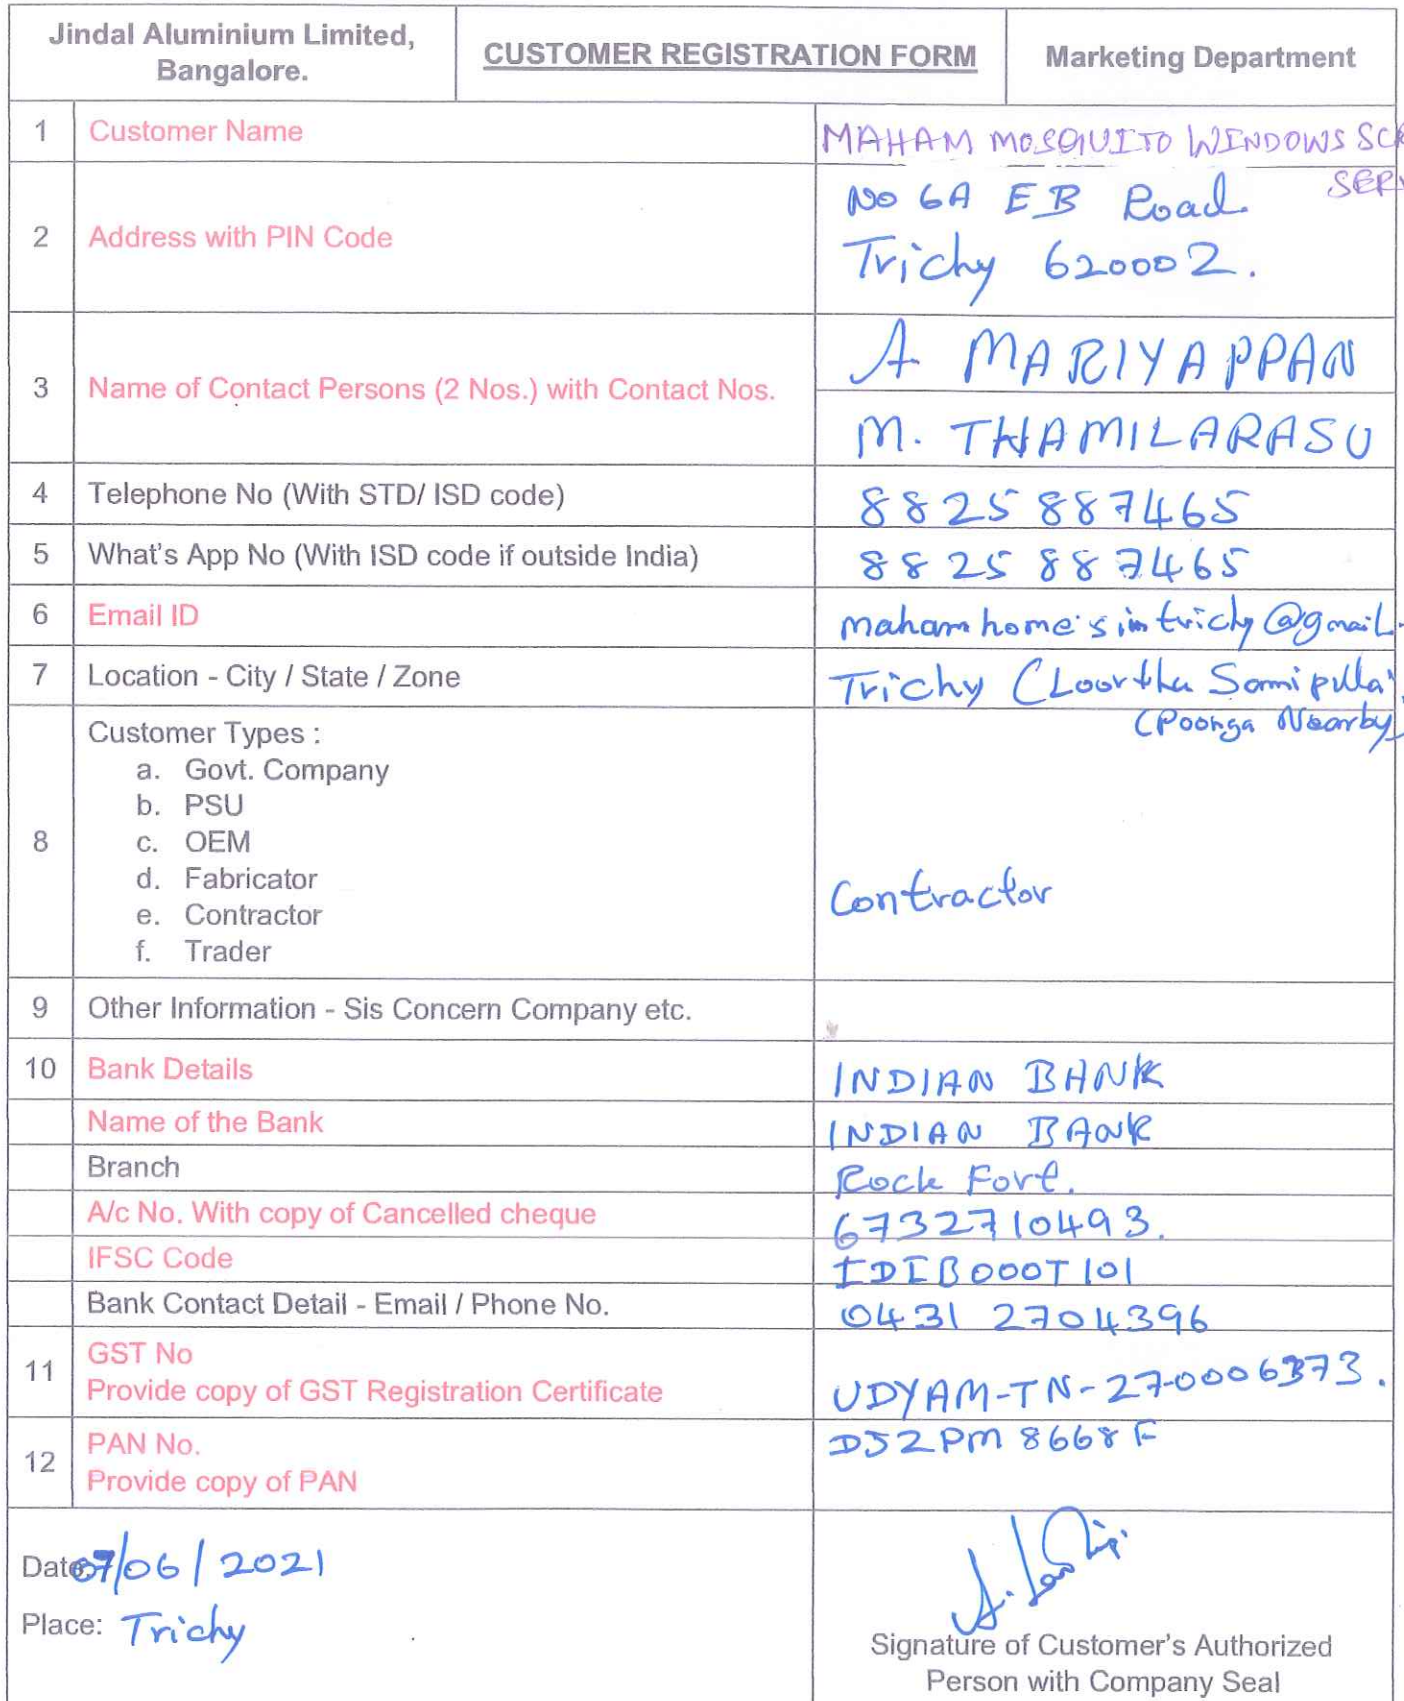 Jindal Aluminium Limited,
Bangalore.
CUSTOMER REGISTRATION FORM
Marketing Department
1 Customer Name MAHAM MOSQUITO WINDOWS SCR
SERV
2 Address with PIN Code No 6A EB Road.
Trichy 620002.
3 Name of Contact Persons (2 Nos.) with Contact Nos. A MARIYAPPAN
M. THAMILARASU
4 Telephone No (With STD/ ISD code) 8825887465
5 What's App No (With ISD code if outside India) 8825887465
6 Email ID mahamhome's in trichy@gmail.
7 Location - City / State / Zone Trichy (Loortha Samipillai
(Poonga Nearby)
8 Customer Types :
a. Govt. Company
b. PSU
c. OEM
d. Fabricator
e. Contractor
f. Trader
Contractor
9 Other Information - Sis Concern Company etc.
10 Bank Details INDIAN BANK
Name of the Bank INDIAN BANK
Branch Rock Fort.
A/c No. With copy of Cancelled cheque 6732710493.
IFSC Code IDIB000T101
Bank Contact Detail - Email / Phone No. 0431 2704396
11 GST No
Provide copy of GST Registration Certificate UDYAM-TN-27-0006373.
12 PAN No. DJZPM8668F
Provide copy of PAN
Date: 07/06/2021
Place: Trichy
Signature of Customer's Authorized
Person with Company Seal